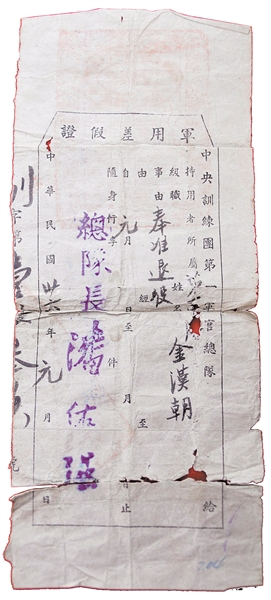 軍用差假證
中央訓練團第一軍官總隊 給
持用者所屬
級職 姓名 金漢朝
事由 奉准退役
由 經 至
自 元 月 日至 月 日止
隨身行李 件
總隊長潘佑強
中華民國卅六年元月 日
訓字第 號